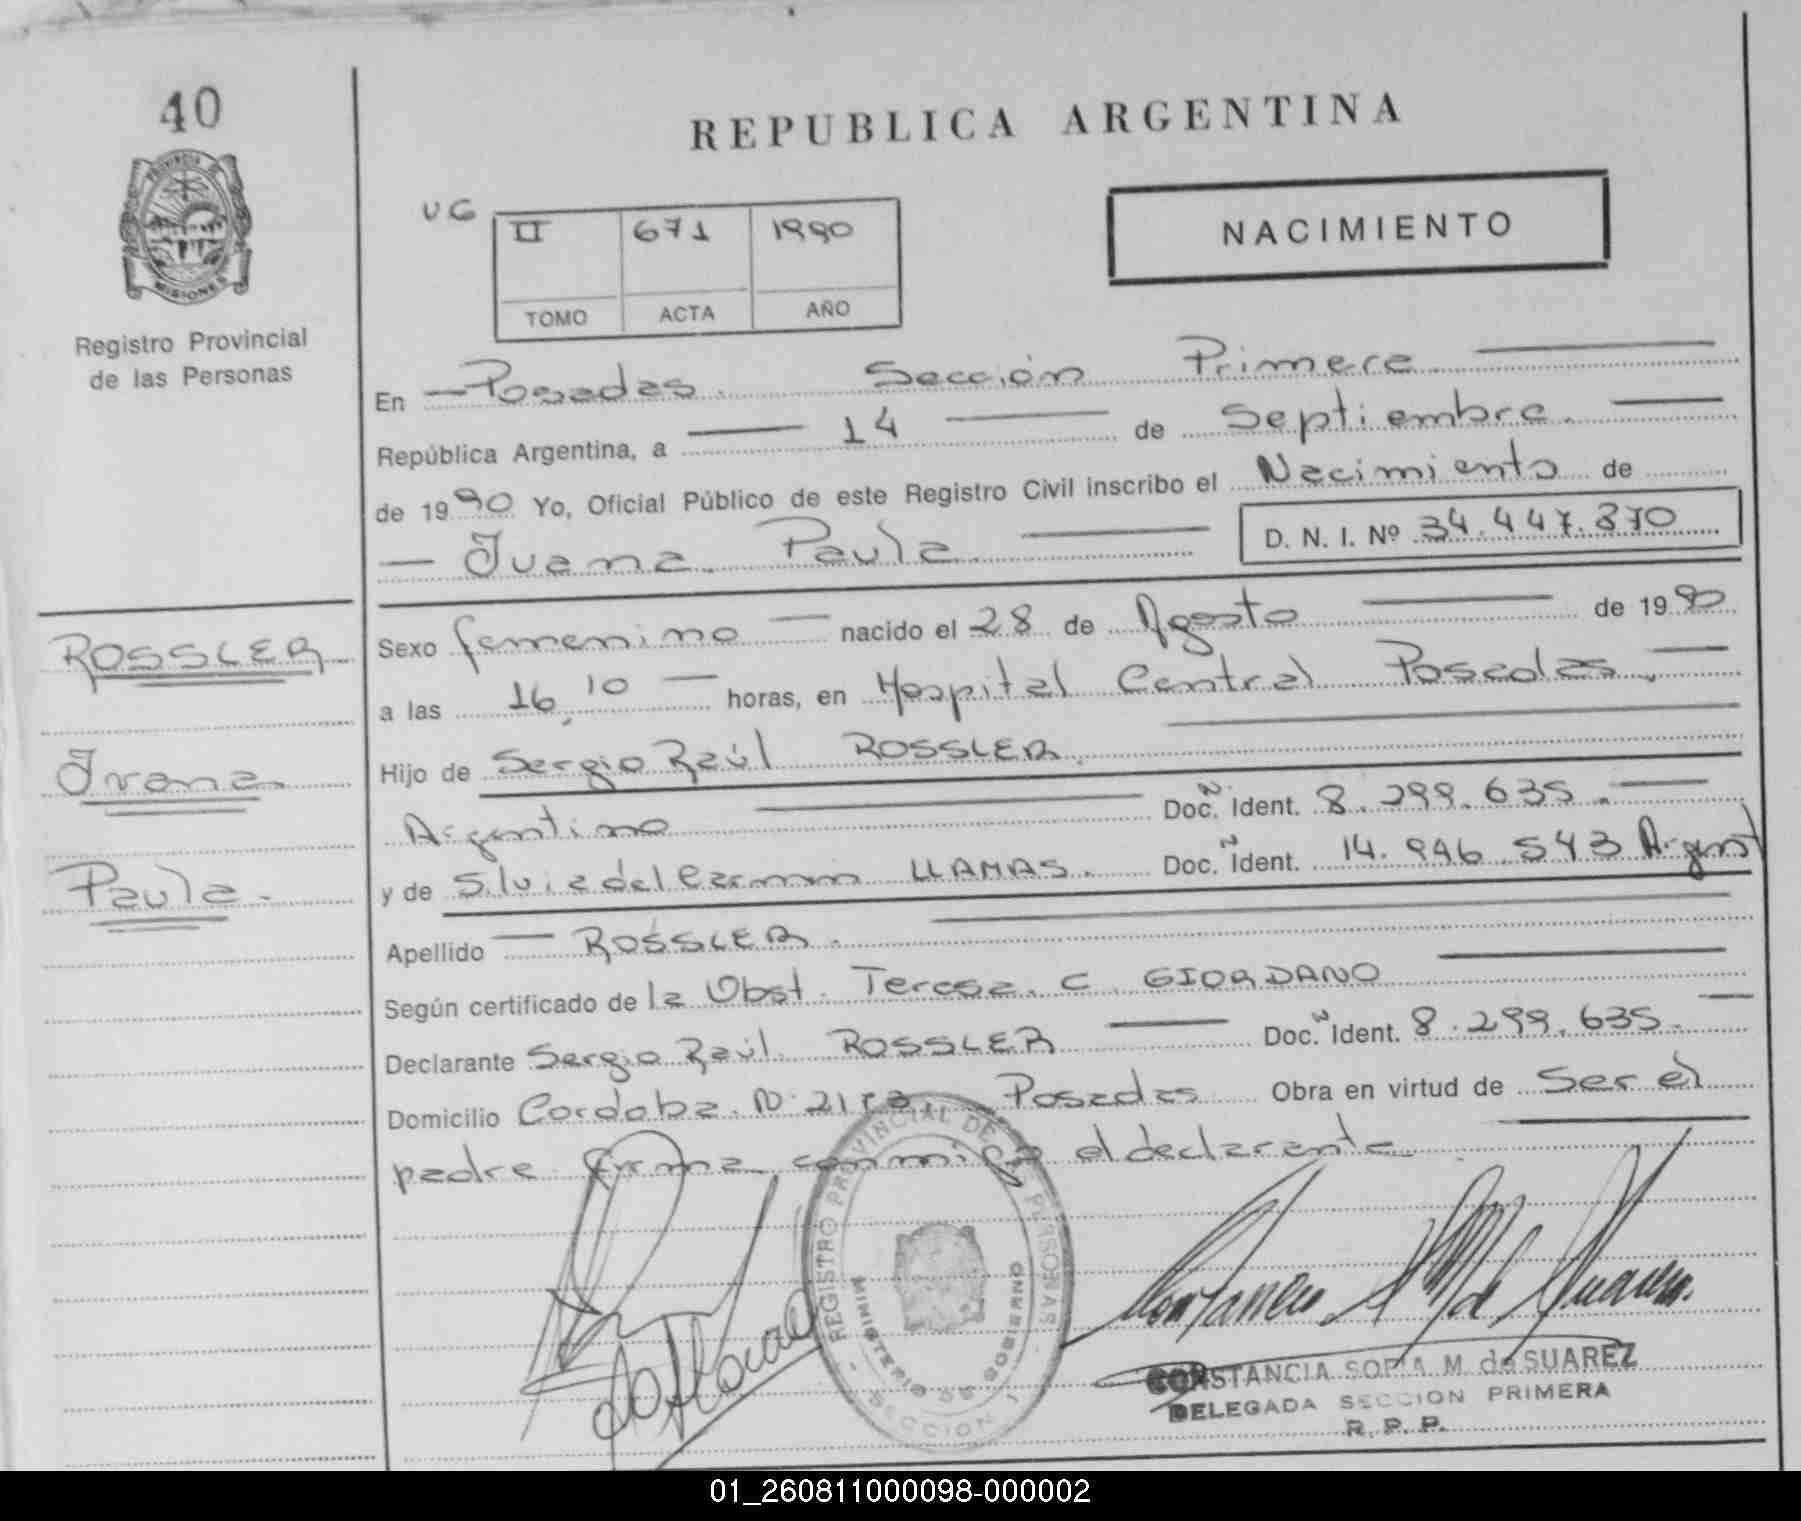 40
PROVINCIA DE
MISIONES
Registro Provincial
de las Personas
REPUBLICA ARGENTINA
NACIMIENTO
II 671 1990
TOMO ACTA AÑO
En Posadas. Sección Primera
República Argentina, a 14 de Septiembre.
de 1990 Yo, Oficial Público de este Registro Civil inscribo el Nacimiento de
Juana Paula. D. N. I. Nº 34.447.870
ROSSLER
Paula.
Sexo femenino nacido el 28 de Agosto de 1990
a las 16,10 horas, en Hospital Central Posadas.
Hijo de Sergio Raúl ROSSLER.
Argentino Doc. N Ident. 8.299.635.
y de Silvia del Carmen LLAMAS. Doc. N Ident. 14.946.543 Argent
Apellido ROSSLER.
Según certificado de la Obst. Teresa C. GIORDANO
Declarante Sergio Raúl ROSSLER Doc. N Ident. 8.299.635.
Domicilio Cordoba N Posadas Obra en virtud de Ser el
padre firma conmigo el declarante
REGISTRO PROVINCIAL DE LAS PERSONAS
MINISTERIO DE GOBIERNO
SECCION 1
CONSTANCIA SOFIA M. de SUAREZ
DELEGADA SECCION PRIMERA
R. P. P.
01_260811000098-000002